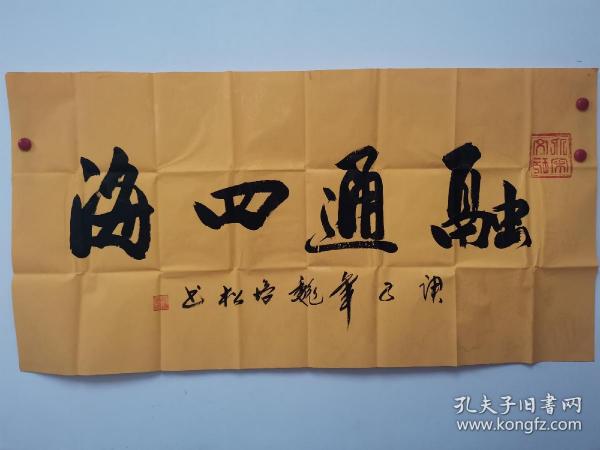 融通四海
庚子年魏培松书
孔夫子旧書网
www.kongfz.com